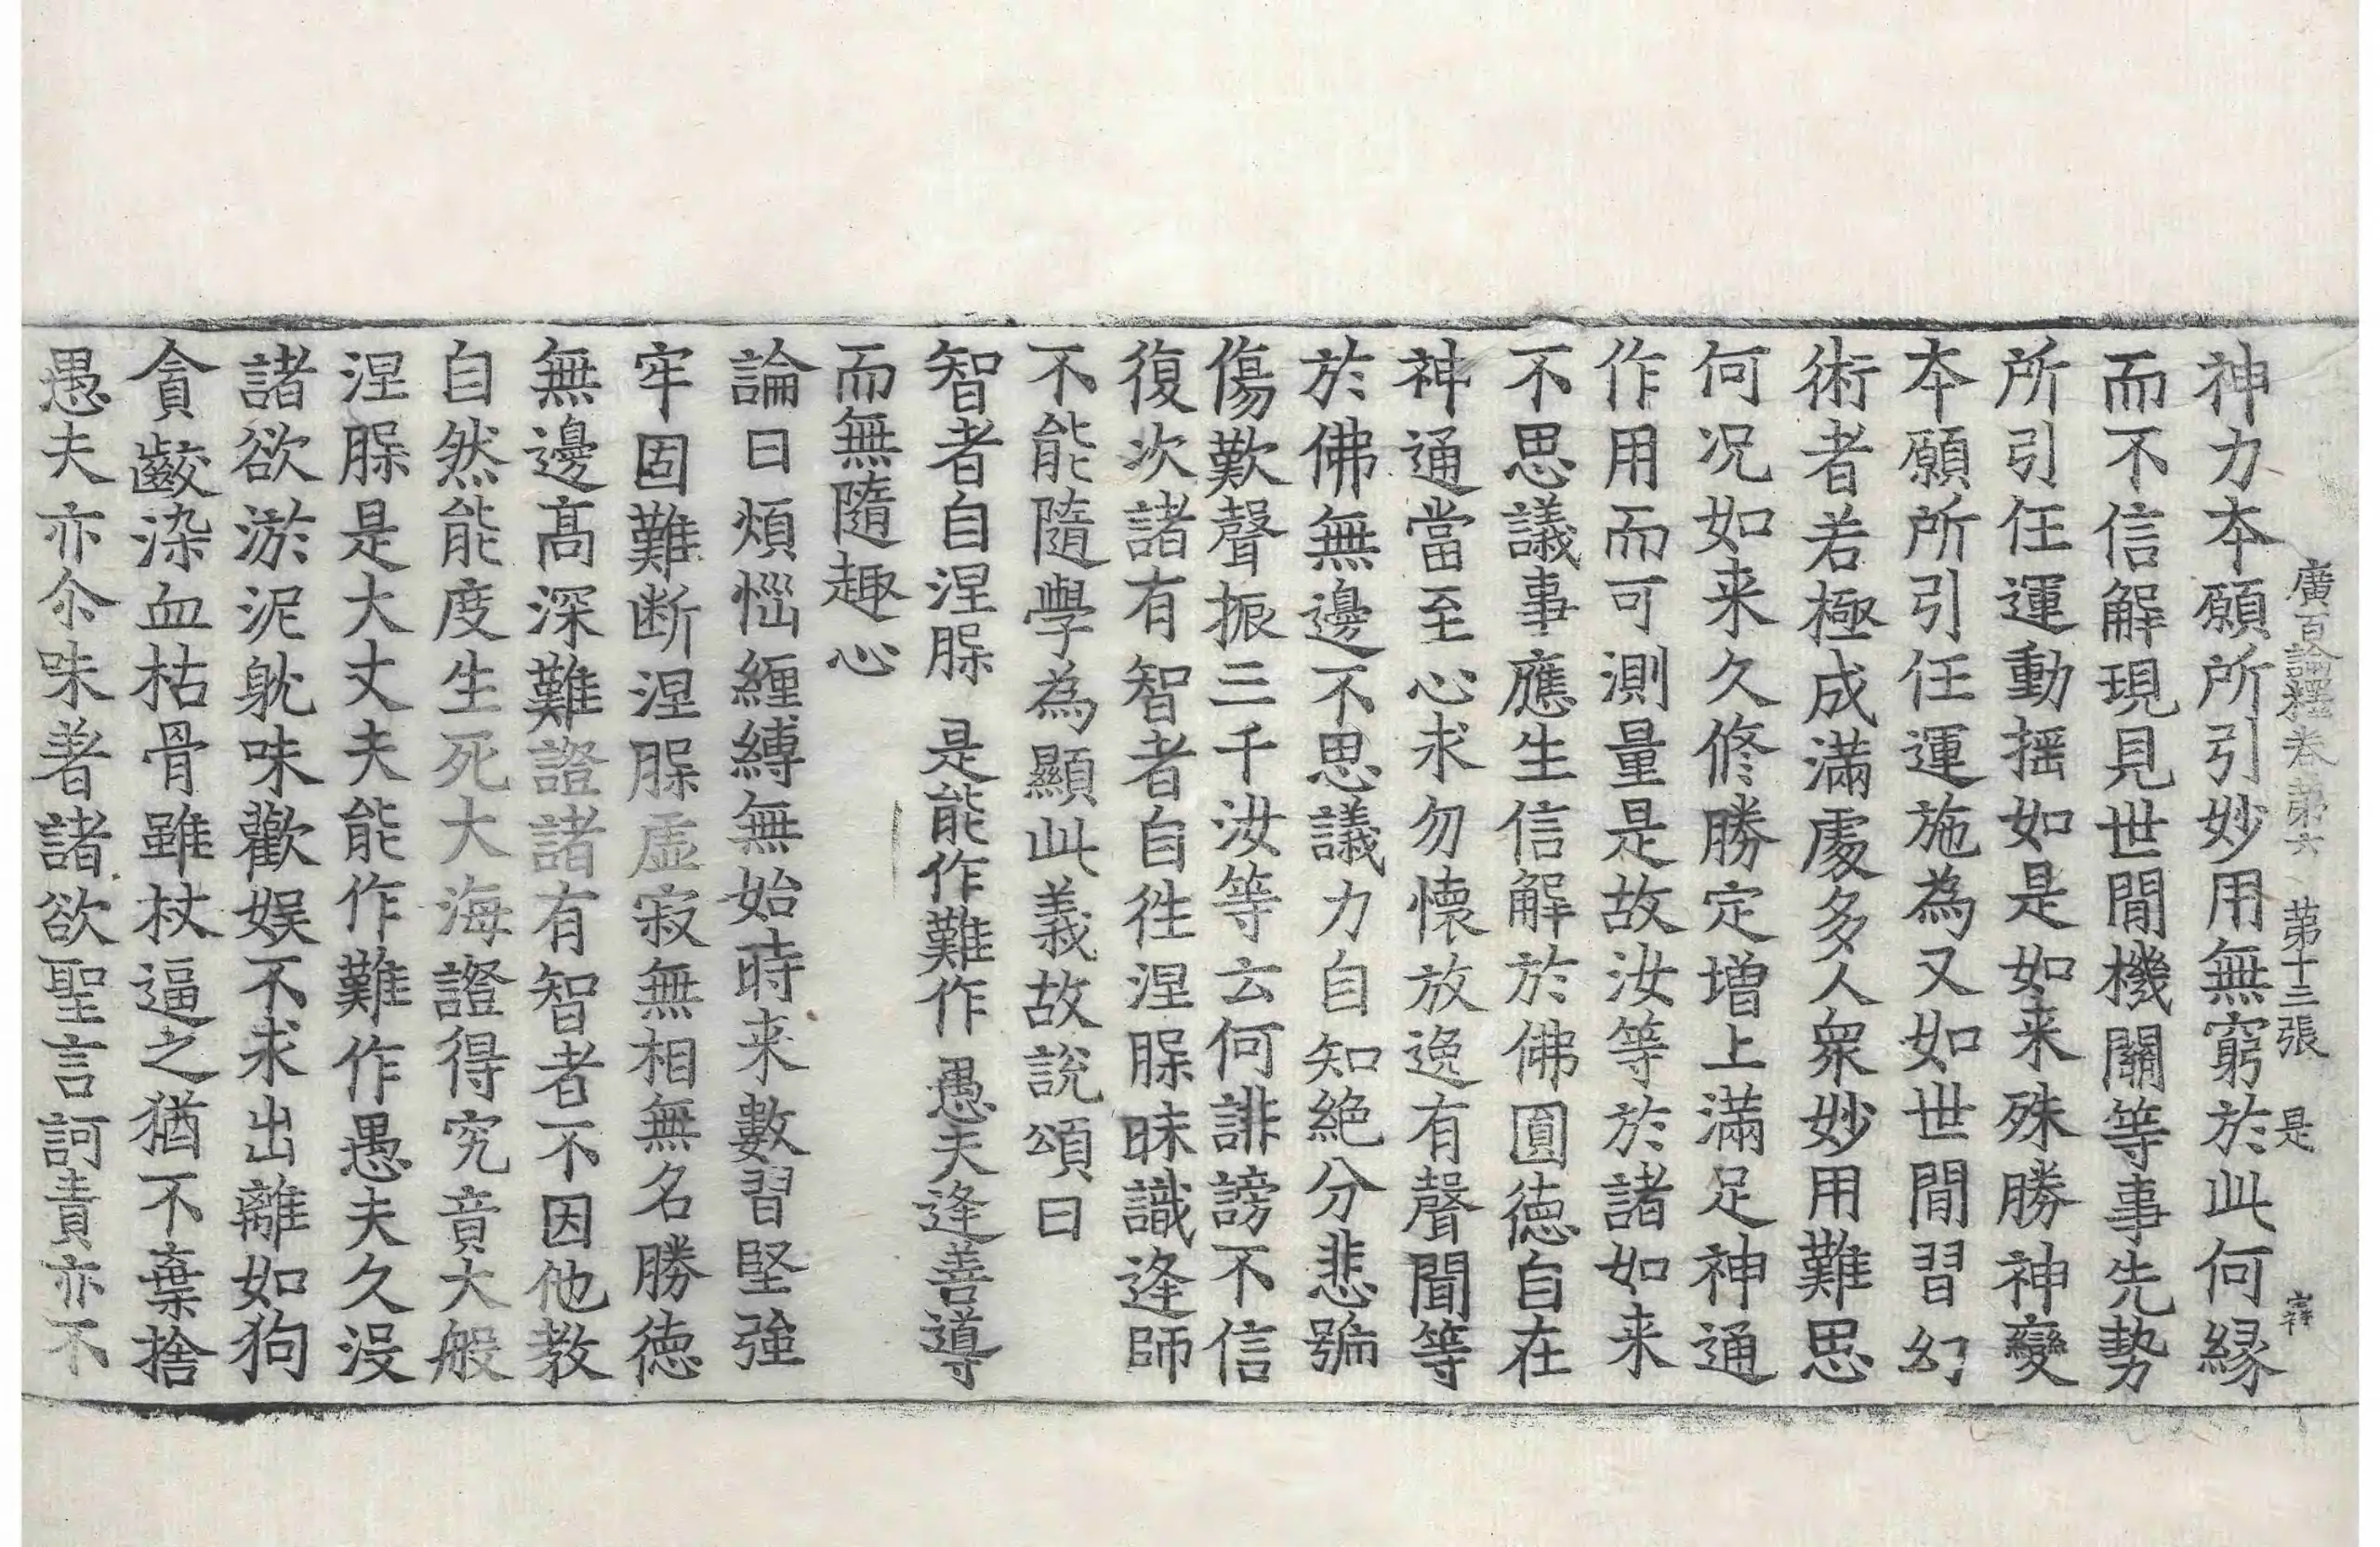 廣百論釋卷第六 第十三張 是
神力夲願所引妙用無窮於此何縁
而不信解現見世間機關等事先勢
所引任運動揺如是如来殊勝神變
夲願所引任運施為又如世間習幻
術者若極成滿處多人衆妙用難思
何况如来久修勝定增上滿足神通
作用而可測量是故汝等於諸如来
不思議事應生信解於佛圓德自在
神通當至心求勿懷放逸有聲聞等
於佛無邊不思議力自知絶分悲號
傷歎聲振三千汝等云何誹謗不信
復次諸有智者自徃涅槃昧識逄師
不能隨學為顯此義故說頌曰
智者自涅槃 是能作難作 愚夫逄善導
而無隨趣心
論曰煩惱纒縛無始時来數習堅強
牢固難断涅槃虛寂無相無名勝德
無邊髙深難證諸有智者不因他教
自然能度生死大海證得究竟大般
涅槃是大丈夫能作難作愚夫久沒
諸欲淤泥躭味歡娱不求出離如狗
貪齩染血枯骨雖杖逼之猶不棄捨
愚夫亦尒味著諸欲聖言訶責亦不